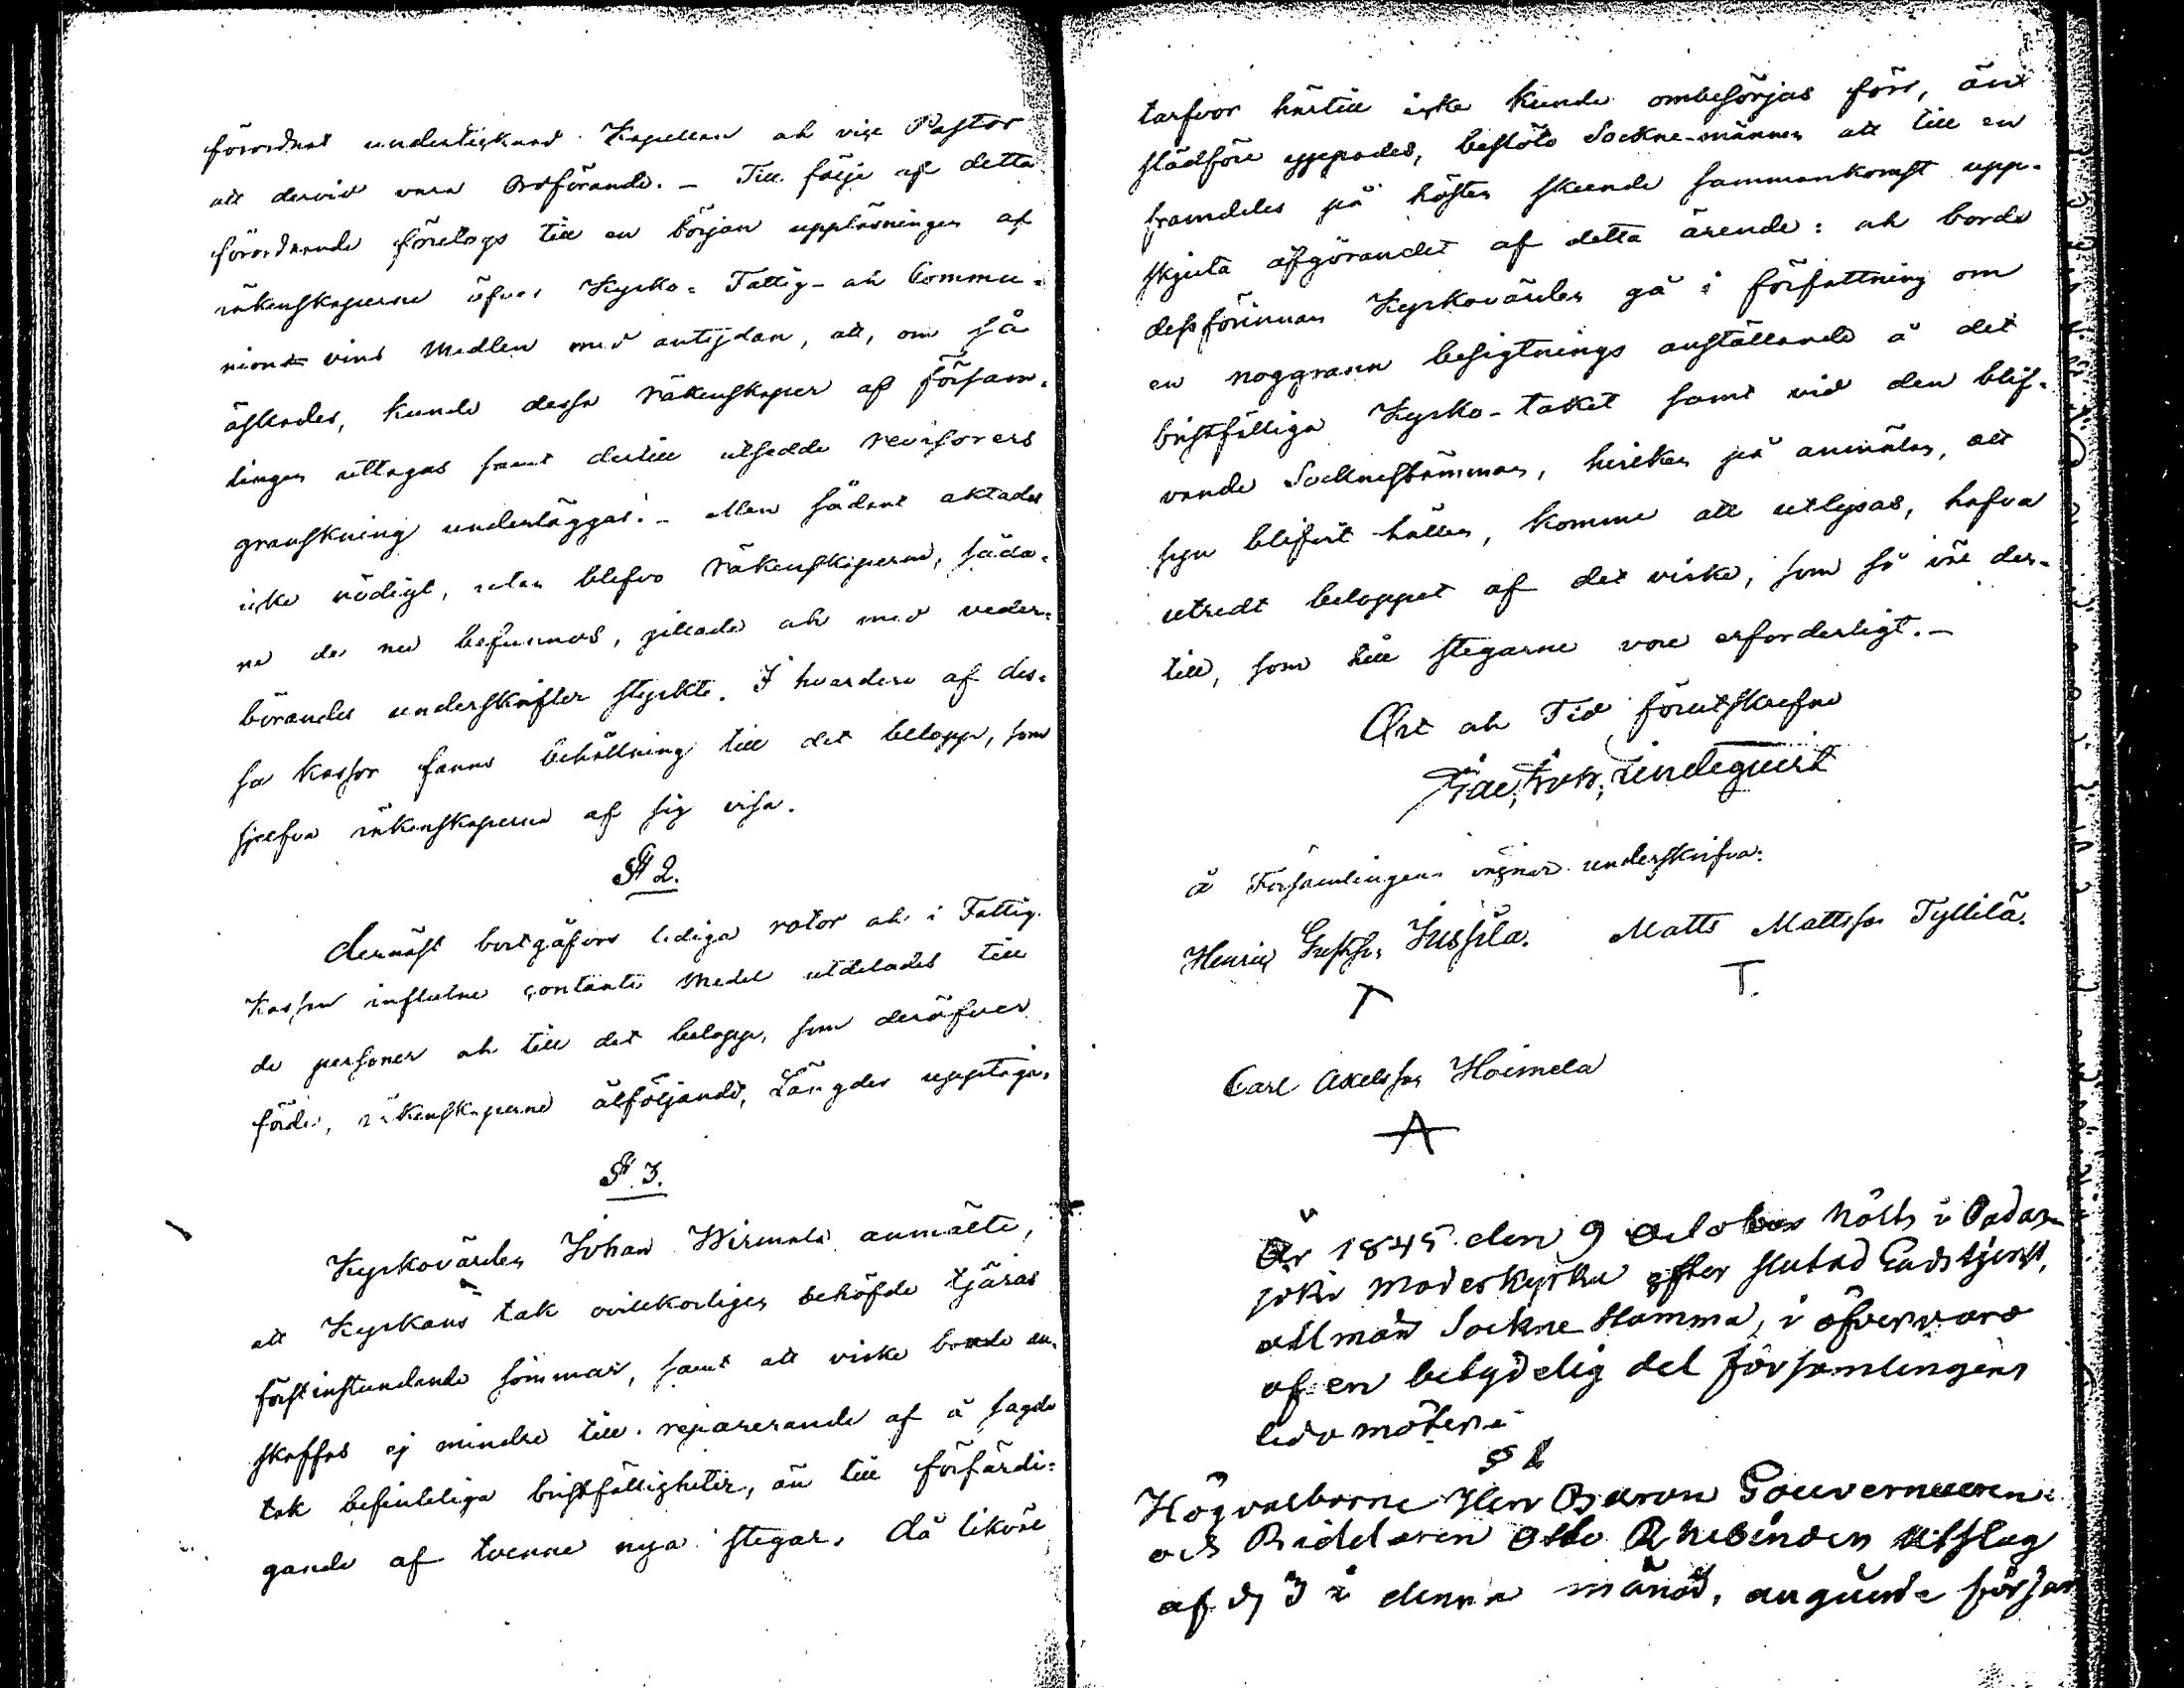 förordnat undertecknad Kapellan och vice Pastor
att dervid vara Ordförande. – Till följe af detta
förordnande företogs till en början uppläsningen af
räkenskaperne öfver Kyrko- Fattig- och Commu-
nions vins Medlen med antydan, att, om så
åstundes, kunde dessa räkenskaper af försam-
lingen uttagas samt dertill utsedde revisorers
granskning underläggas. – Men sådant aktades
icke nödigt, utan blefvo räkenskaperne, såda-
ne de nu befunnos, gillade och med veder-
börandes underskrifter styrkte. I hvardera af des-
sa kassor fanns behållning till det belopp, som
sjelfva räkenskaperne af sig visa.
§ 2.
Dernäst bortgåfvos lediga rotor och i Fattig-
Kassan influtne contante Medel utdelades till
de personer och till det belopp, som deröfver
förde, räkenskaperne åtföljande, Längder upptaga.
§ 3.
Kyrkovärden Johan Wirmala anmälte,
att Kyrkans tak ovilkorligen behöfde tjäras
förstinstundande sommar, samt att virke borde an-
skaffas ej mindre till reparerande af å sagde
tak befintliga bristfälligheter, än till förfärdi-
gande af tvenne nya stegar. Då likväl
tarfvor härtill icke kunde ombesörjas förr, än
slädföre yppades, beslöto Sockne-männen att till en
framdeles på hösten skeende sammankomst upp-
skjuta afgörandet af detta ärende: och borde
dessförinnan Kyrkovärden gå i författning om
en noggrann besigtnings anställande å det
bristfälliga Kyrko-taket samt vid den blif-
vande Socknestämman, hvilken på anmälan, att
syn blifvit hållen, komme att utlysas, hafva
utredt beloppet af det virke, som så väl der-
till, som till stegarne vore erforderligt. –
Ort och Tid förutskrefne
Lindequist
å Församlingens vägnar underskrifva:
Henric Gustafss. Jussila. Matts Mattsson Tyllilä.
T T.
Carl Axelsson Hoimela
A
År 1845 den 9 October hölts i Padas-
joki moderkyrka efter slutad Gudstjenst,
allmän Sockne Stamma, i öfvervaro
af en betydelig del församlingens
ledamöter:
§ 1
Högvälborne Herr Baron Gouverneuren
och Riddaren Otto Rhebinders utslag
af d 3 i denna månad, angående försam